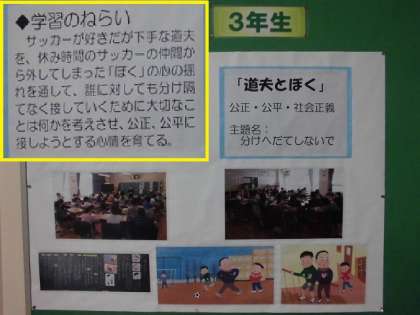 ◆学習のねらい
サッカーが好きだが下手な道夫
を、休み時間のサッカーの仲間か
ら外してしまった「ぼく」の心の揺
れを通して、誰に対しても分け隔
てなく接していくために大切なこ
とは何かを考えさせ、公正、公平に
接しようとする心情を育てる。
3年生
「道夫とぼく」
公正・公平・社会正義
主題名：
分けへだてしないで